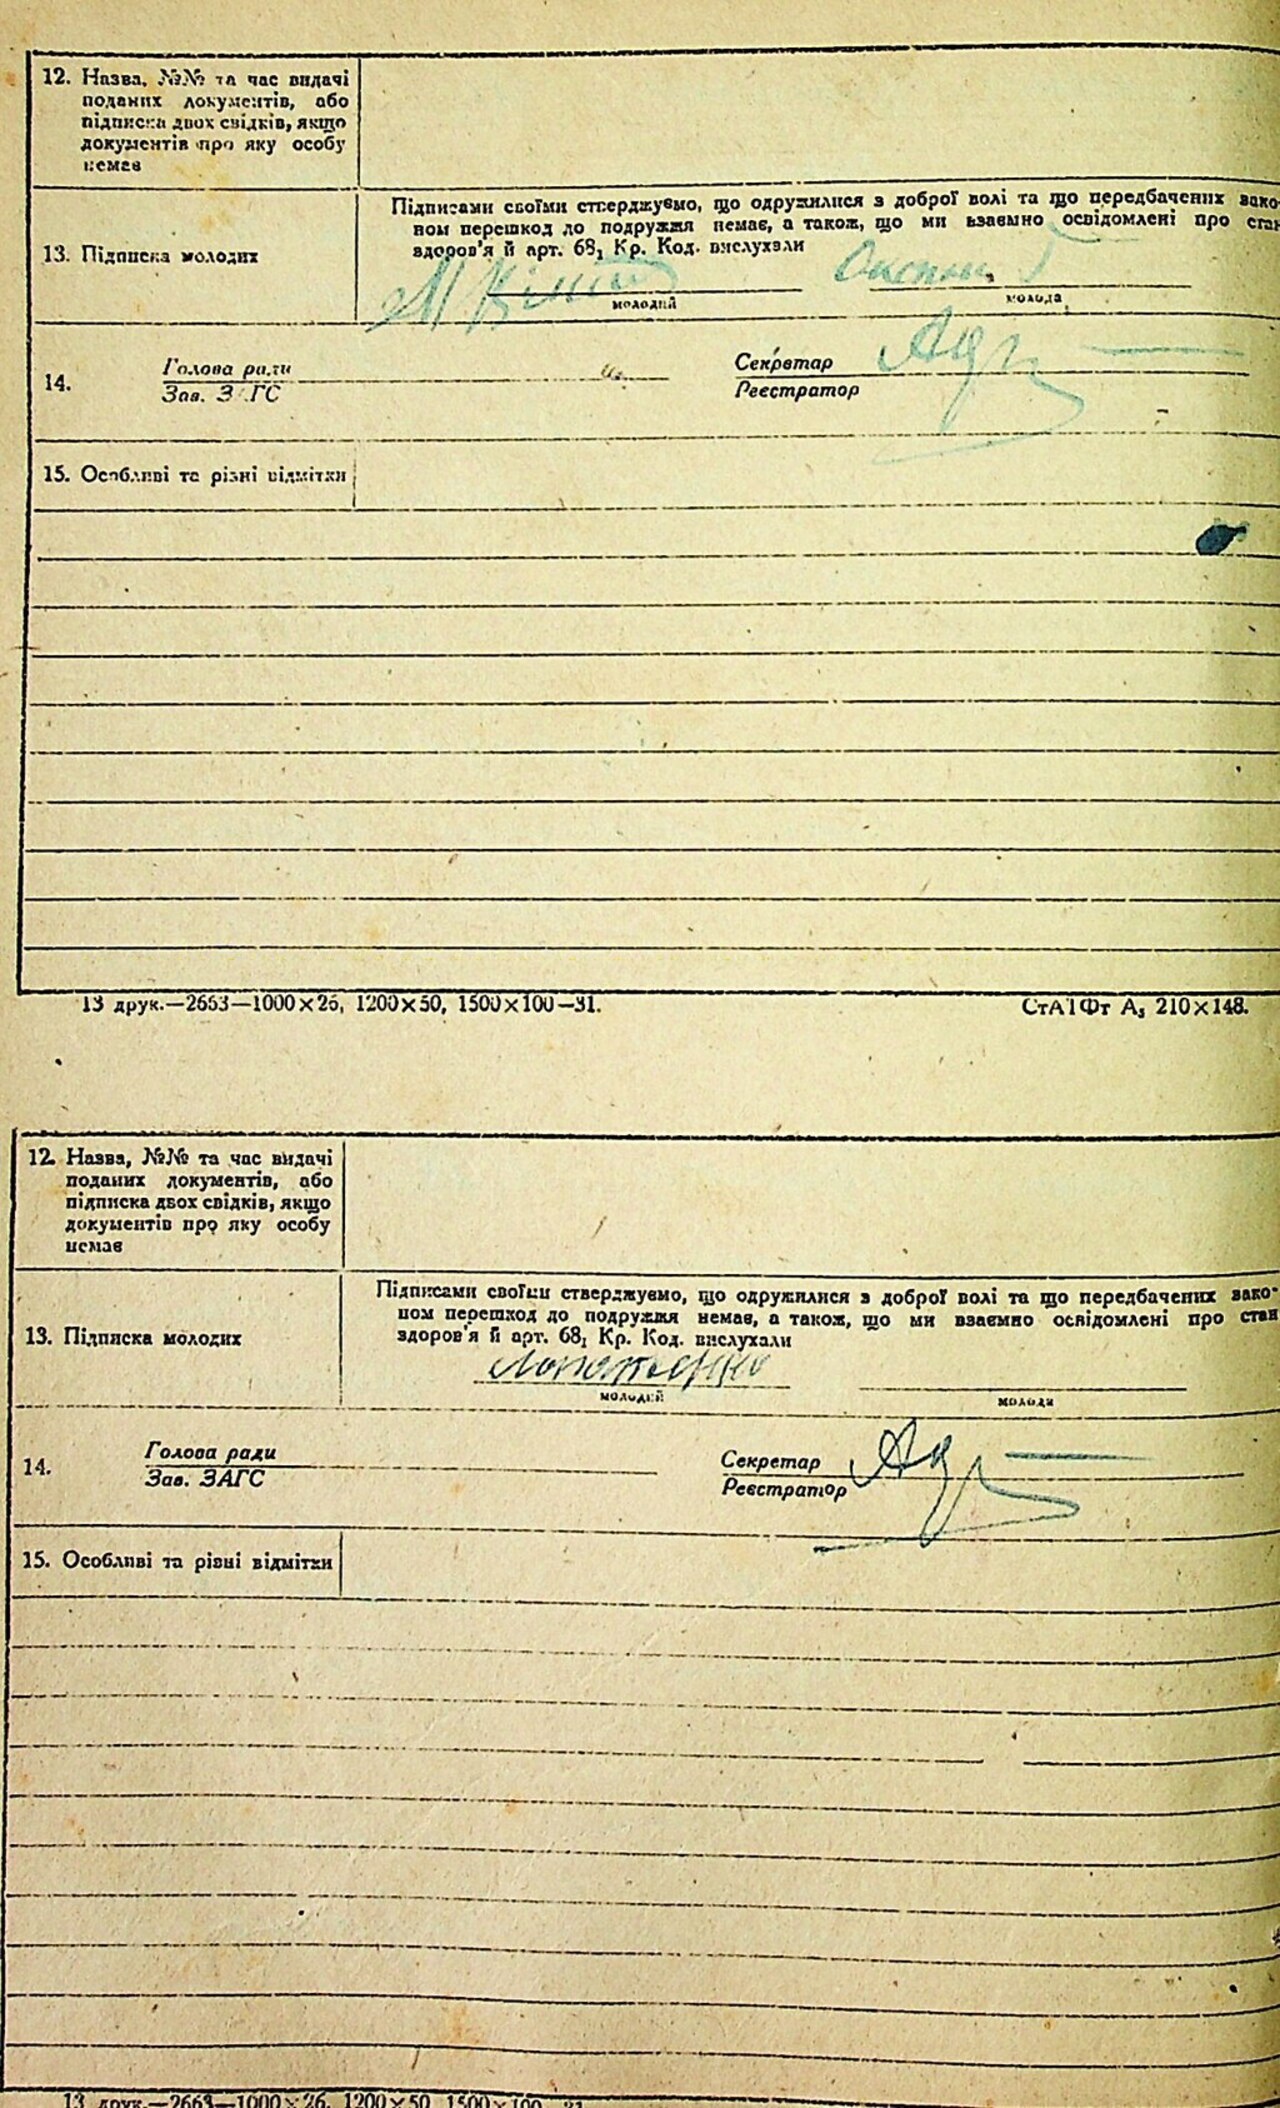 12. Назва, №№ та час видачі
поданих документів, або
підписка двох свідків, якщо
документів про яку особу
немає
Підписами своїми стверджуємо, що одружилися з доброї волі та що передбачених зако-
ном перешкод до подружжя немає, а також, що ми взаємно освідомлені про стан
здоров'я й арт. 68₁ Кр. Код. вислухали
13. Підписка молодих
молодий
молода
14.
Голова ради
Зав. ЗАГС
Секретар
Реєстратор
15. Особливі та різні відмітки
13 друк.—2663—1000×26, 1200×50, 1500×100—31.
СтАТФт А₅ 210×148.
12. Назва, №№ та час видачі
поданих документів, або
підписка двох свідків, якщо
документів про яку особу
немає
Підписами своїми стверджуємо, що одружилися з доброї волі та що передбачених зако-
ном перешкод до подружжя немає, а також, що ми взаємно освідомлені про стан
здоров'я й арт. 68₁ Кр. Код. вислухали
13. Підписка молодих
молодий
молода
14.
Голова ради
Зав. ЗАГС
Секретар
Реєстратор
15. Особливі та різні відмітки
13 друк.—2663—1000×26, 1200×50, 1500×100—31.